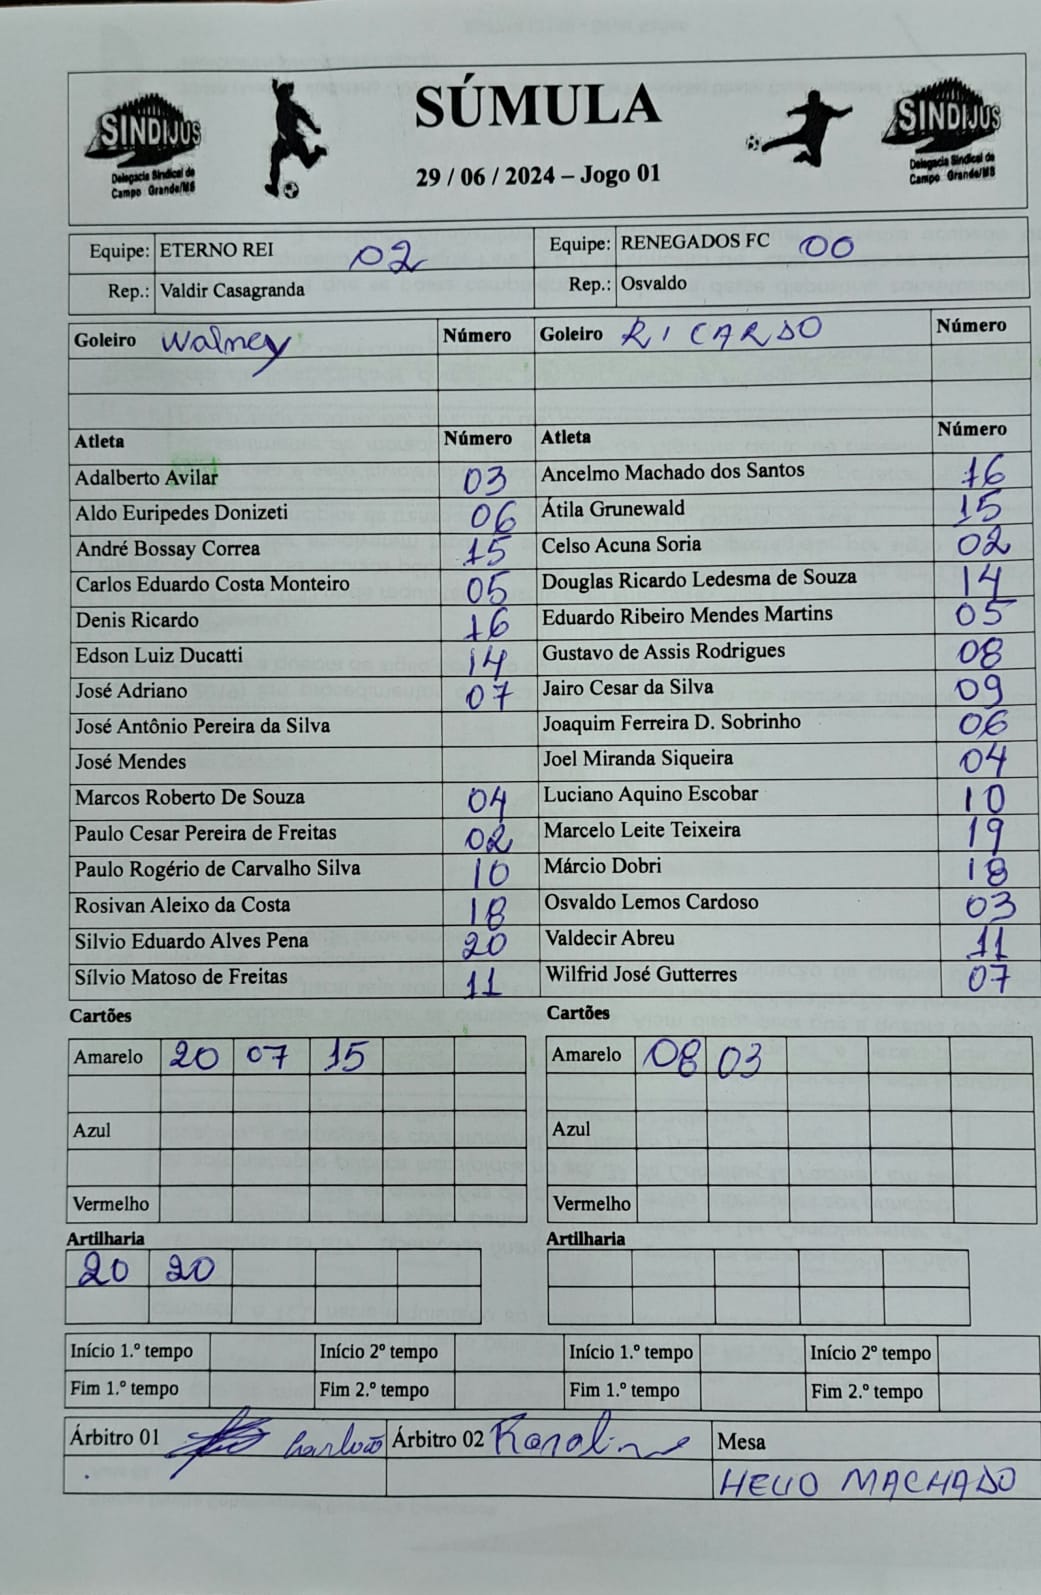 SÚMULA
29 / 06 / 2024 – Jogo 01
SINDIJUS
Delegacia Sindical de
Campo Grande/MS
SINDIJUS
Delegacia Sindical de
Campo Grande/MS
Equipe: ETERNO REI 02 Equipe: RENEGADOS FC 00
Rep.: Valdir Casagranda Rep.: Osvaldo
Goleiro Walney Número Goleiro RICARDO Número
Atleta Número Atleta Número
Adalberto Avilar 03 Ancelmo Machado dos Santos 16
Aldo Euripedes Donizeti 06 Átila Grunewald 15
André Bossay Correa 15 Celso Acuna Soria 02
Carlos Eduardo Costa Monteiro 05 Douglas Ricardo Ledesma de Souza 14
Denis Ricardo 16 Eduardo Ribeiro Mendes Martins 05
Edson Luiz Ducatti 14 Gustavo de Assis Rodrigues 08
José Adriano 07 Jairo Cesar da Silva 09
José Antônio Pereira da Silva Joaquim Ferreira D. Sobrinho 06
José Mendes Joel Miranda Siqueira 04
Marcos Roberto De Souza 04 Luciano Aquino Escobar 10
Paulo Cesar Pereira de Freitas 02 Marcelo Leite Teixeira 19
Paulo Rogério de Carvalho Silva 10 Márcio Dobri 18
Rosivan Aleixo da Costa 18 Osvaldo Lemos Cardoso 03
Silvio Eduardo Alves Pena 20 Valdecir Abreu 11
Sílvio Matoso de Freitas 11 Wilfrid José Gutterres 07
Cartões Cartões
Amarelo 20 07 15 Amarelo 08 03
Azul Azul
Vermelho Vermelho
Artilharia Artilharia
20 20
Início 1.º tempo Início 2º tempo Início 1.º tempo Início 2º tempo
Fim 1.º tempo Fim 2.º tempo Fim 1.º tempo Fim 2.º tempo
Árbitro 01 Árbitro 02 Karoline Mesa
HELIO MACHADO